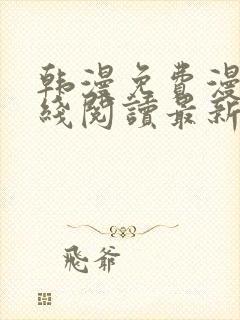 韩漫免费漫
线阅读最新
飛爷